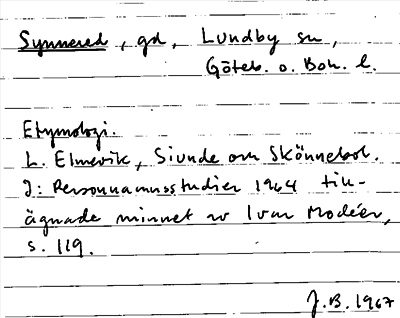 Synnered, gd, Lundby sn,
Göteb. o. Boh. l.
Etymologi.
L. Elmevik, Siunde om Skönnebol.
I: Personnamnsstudier 1964 till-
ägnade minnet av Ivar Modéer,
s. 119.
J.B. 1967